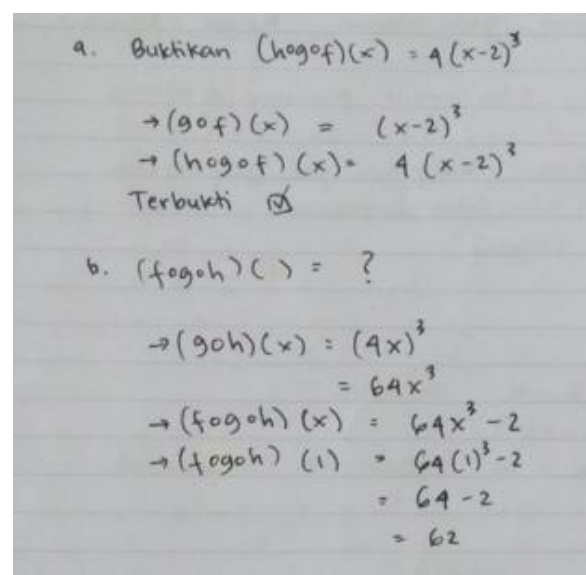 a. Buktikan (hogof)(x) = 4(x-2)³
→ (gof)(x) = (x-2)³
→ (hogof)(x) = 4(x-2)³
Terbukti ☑
b. (fogoh)( ) = ?
→ (goh)(x) = (4x)³
= 64x³
→ (fogoh)(x) = 64x³ - 2
→ (fogoh)(1) = 64(1)³ - 2
= 64 - 2
= 62